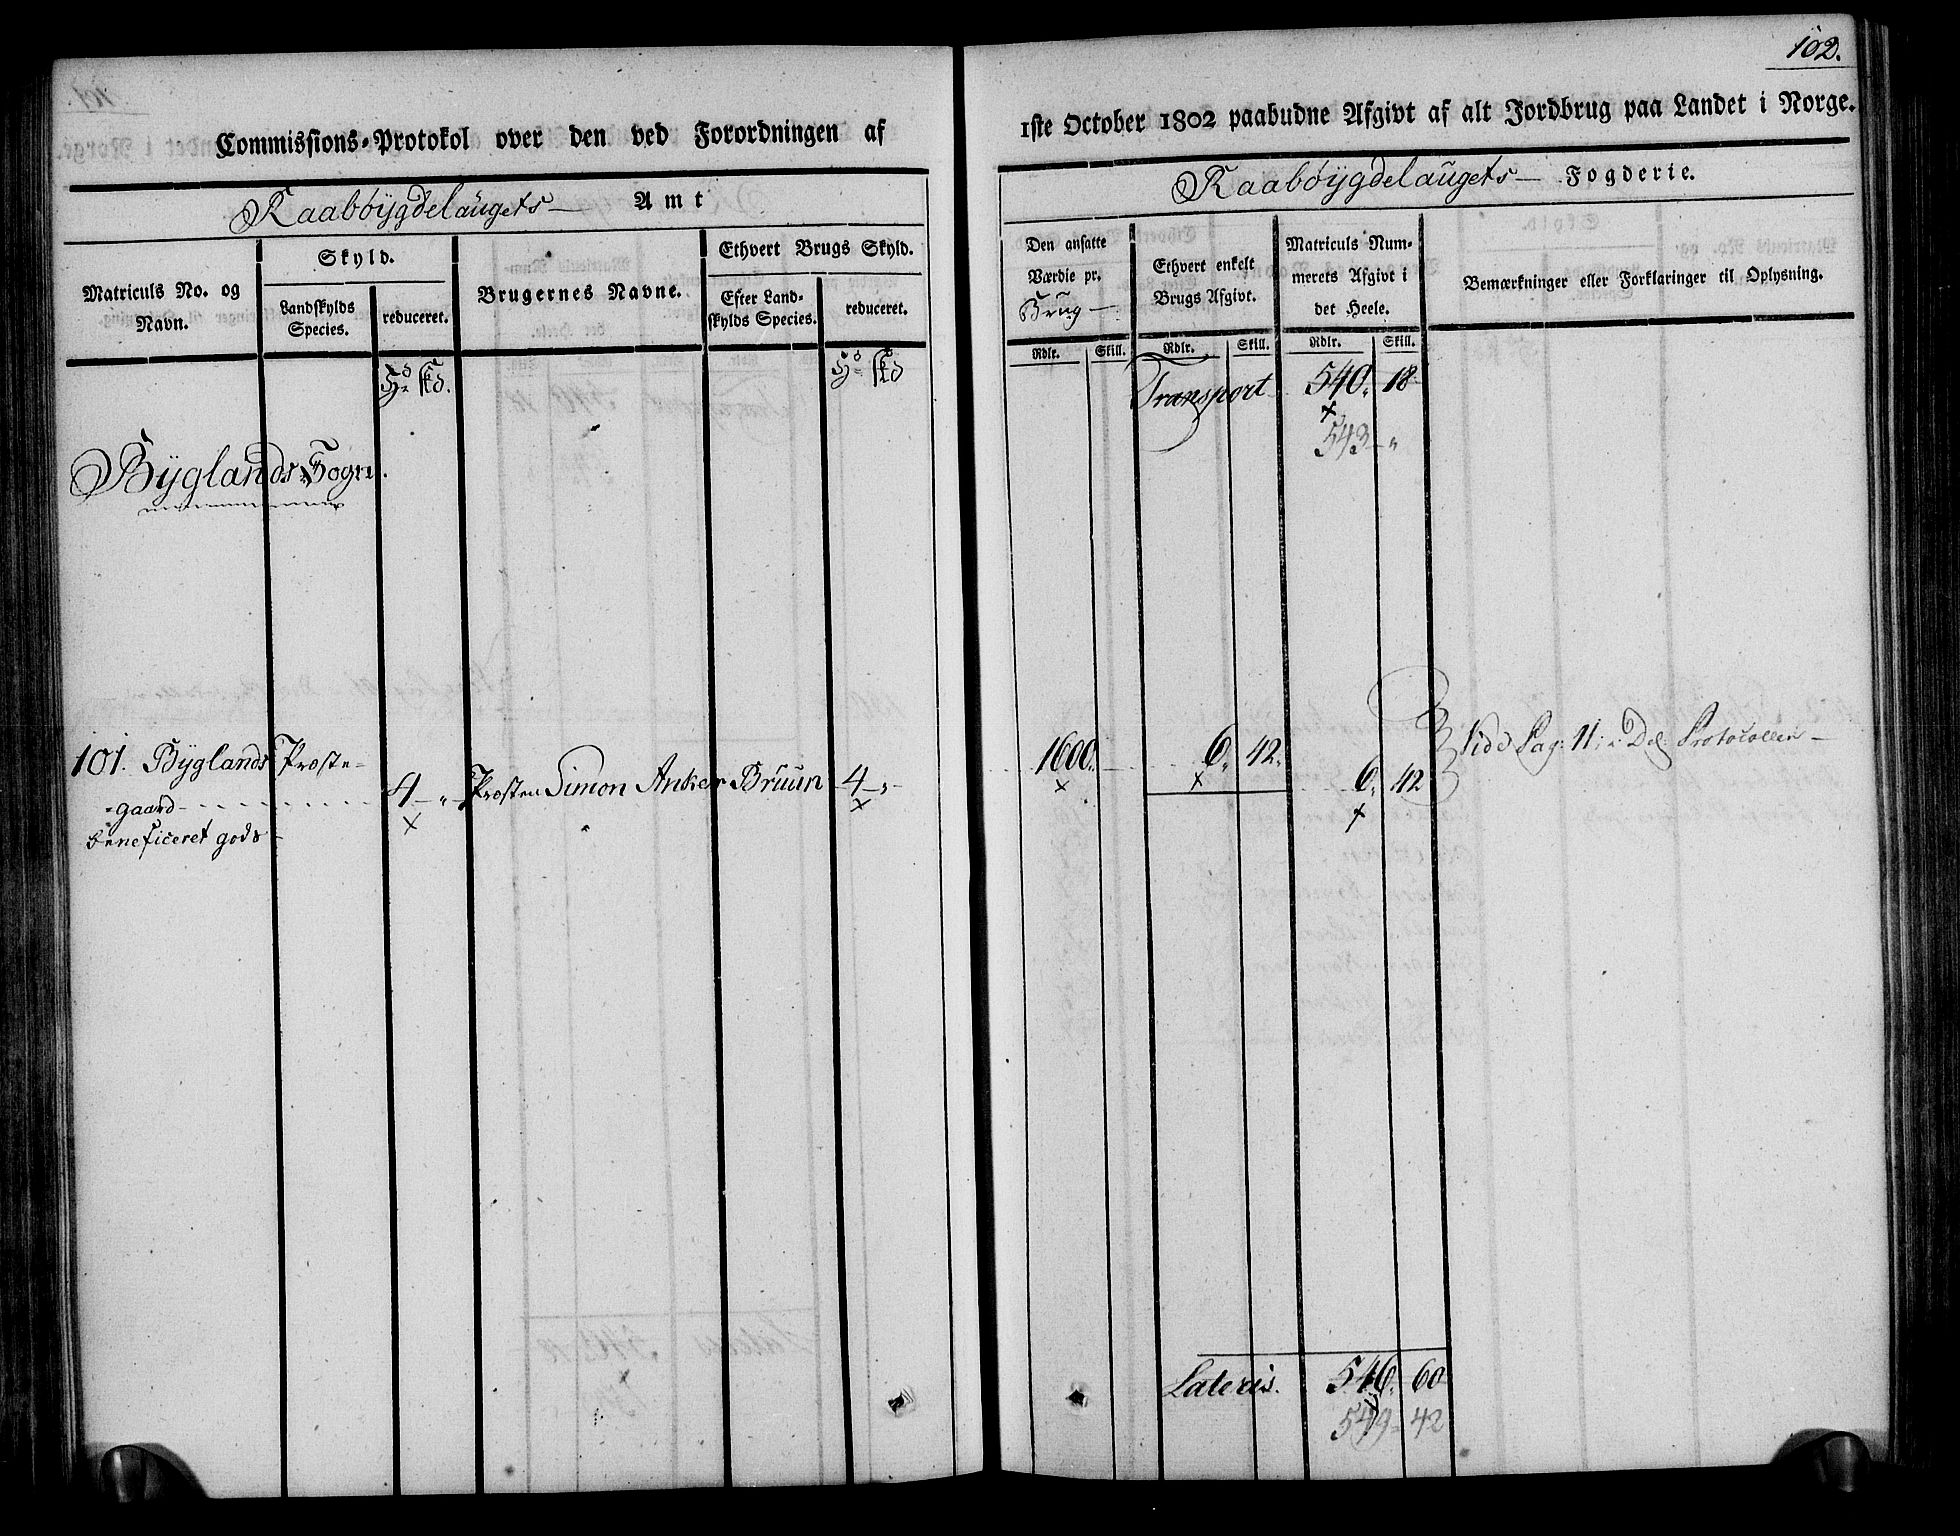 102.
Commissions-Protokol over den ved Forordningen af
1ste October 1802 paabudne Afgivt af alt Jordbrug paa Landet i Norge.
Raabøygdelaugets Amt
Raabøygdelaugets Fogderie.
Matriculs No. og Navn.
Skyld.
Landskylds Species.
reduceret.
Brugernes Navne.
Ethvert Brugs Skyld.
Efter Landskylds Species.
reduceret.
Den ansatte Værdie pr. Brug
Ethvert enkelt Brugs Afgivt.
Matriculs Nummerets Afgivt i det Heele.
Bemærkninger eller Forklaringer til Oplysning.
Rdlr. Skill. Rdlr. Skill. Rdlr. Skill.
Transport 540. 18.
543 "
Byglands Sogn.
101. Byglands Præste-
gaard 4 " Prosten Simon Anker Bruun 4 " 1600. 6. 42. 6. 42 Vide Pag: 11 i Del. Protocollen
beneficeret gods
Lateris. 546. 60
549 - 42